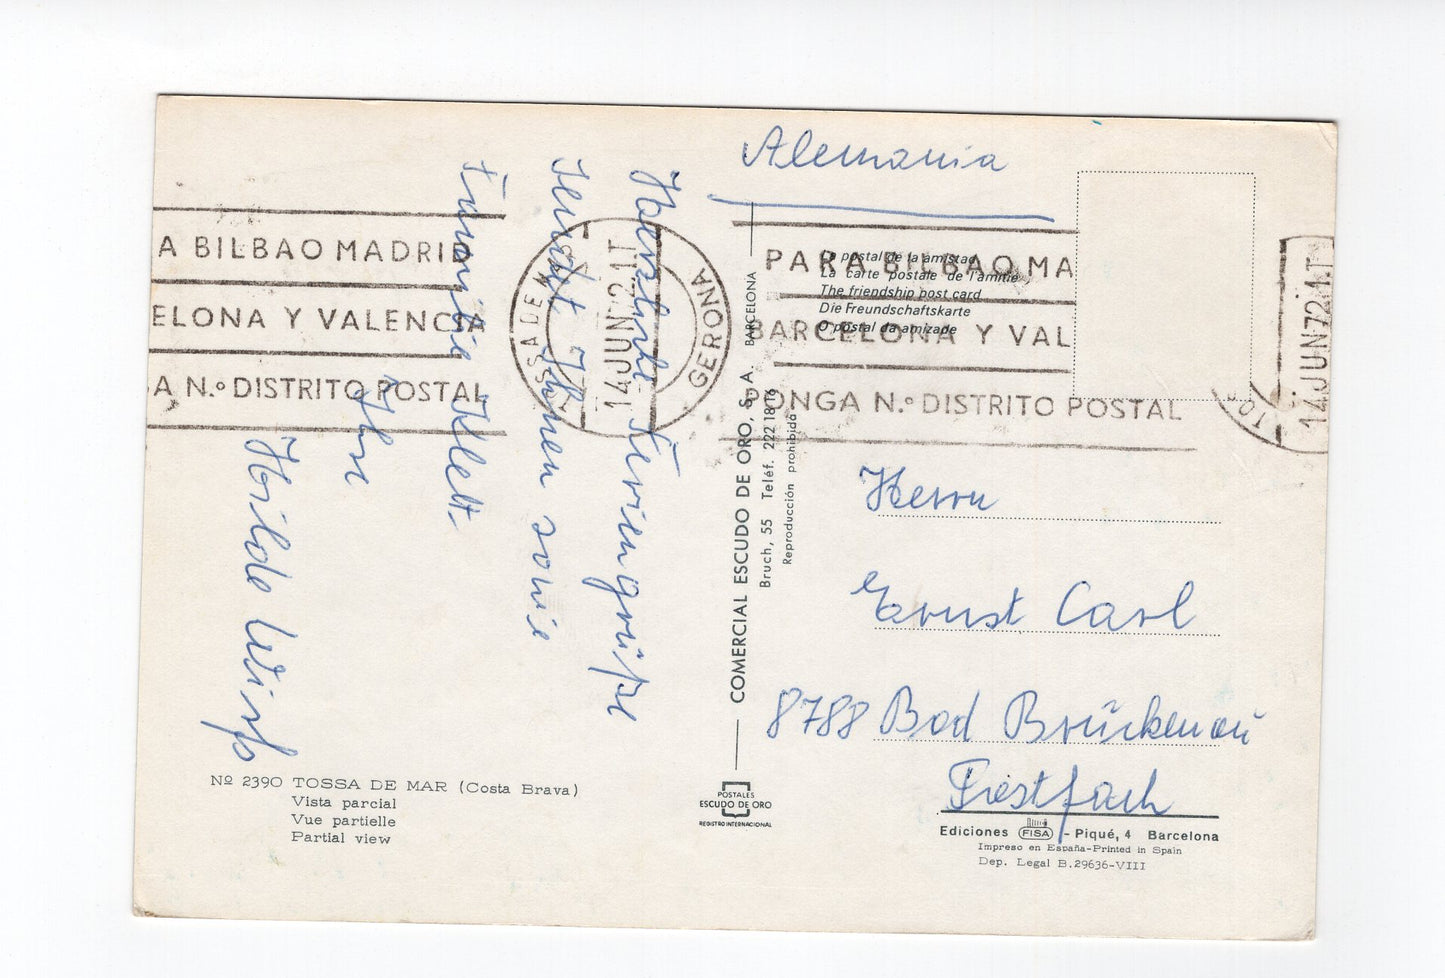 Alemania
Herzliche Feriengrüße
sendet Ihnen sowie
Familie
Ihre
Hilde
Herrn
Ernst Carl
8788 Bad Brückenau
Postfach
A BILBAO MADRID
ELONA Y VALENCIA
A N.º DISTRITO POSTAL
TOSSA DE MAR
14 JUN 72 1T
GERONA
PARA BILBAO MA
BARCELONA Y VAL
PONGA N.º DISTRITO POSTAL
14 JUN 72 1T
TOS
La postal de la amistad
La carte postale de l'amitié
The friendship post card
Die Freundschaftskarte
O postal da amizade
COMERCIAL ESCUDO DE ORO, S. A. BARCELONA
Bruch, 55 Teléf. 222 18 16
Reproducción prohibida
Nº 2390 TOSSA DE MAR (Costa Brava)
Vista parcial
Vue partielle
Partial view
POSTALES
ESCUDO DE ORO
REGISTRO INTERNACIONAL
Ediciones FISA - Piqué, 4 Barcelona
Impreso en España-Printed in Spain
Dep. Legal B.29636-VIII